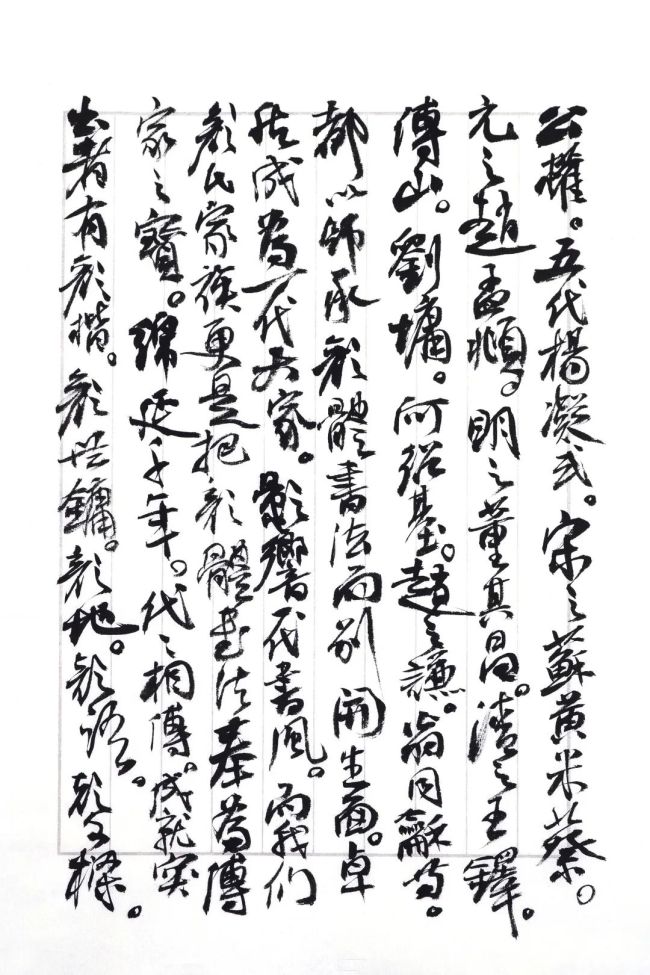 公權。五代楊凝式。宋之蘇黄米蔡。
元之趙孟頫。明之董其昌。清之王鐸。
傅山。劉墉。何紹基。趙之謙。翁同龢等。
都以師承顔體書法而别開生面。卓
然成為一代大家。影響一代書風。而我们
顔氏家族更是把顔體書法奉為傳
家之寳。綿延千年。代々相傳。成就突
出者有顔楷。顔世鏞。顔地。顔語。顔公樑。